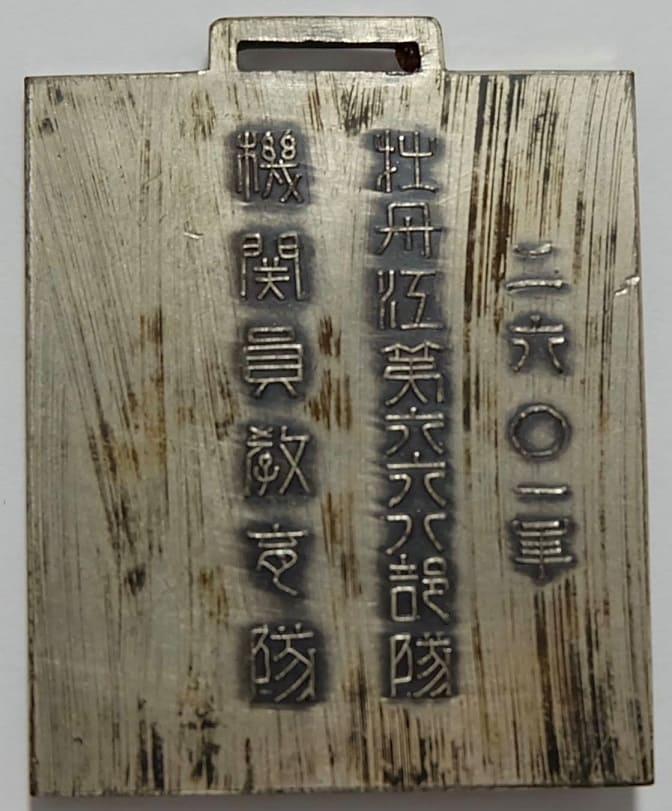 二六〇一年
牡丹江第六六八部隊
機関員教育隊